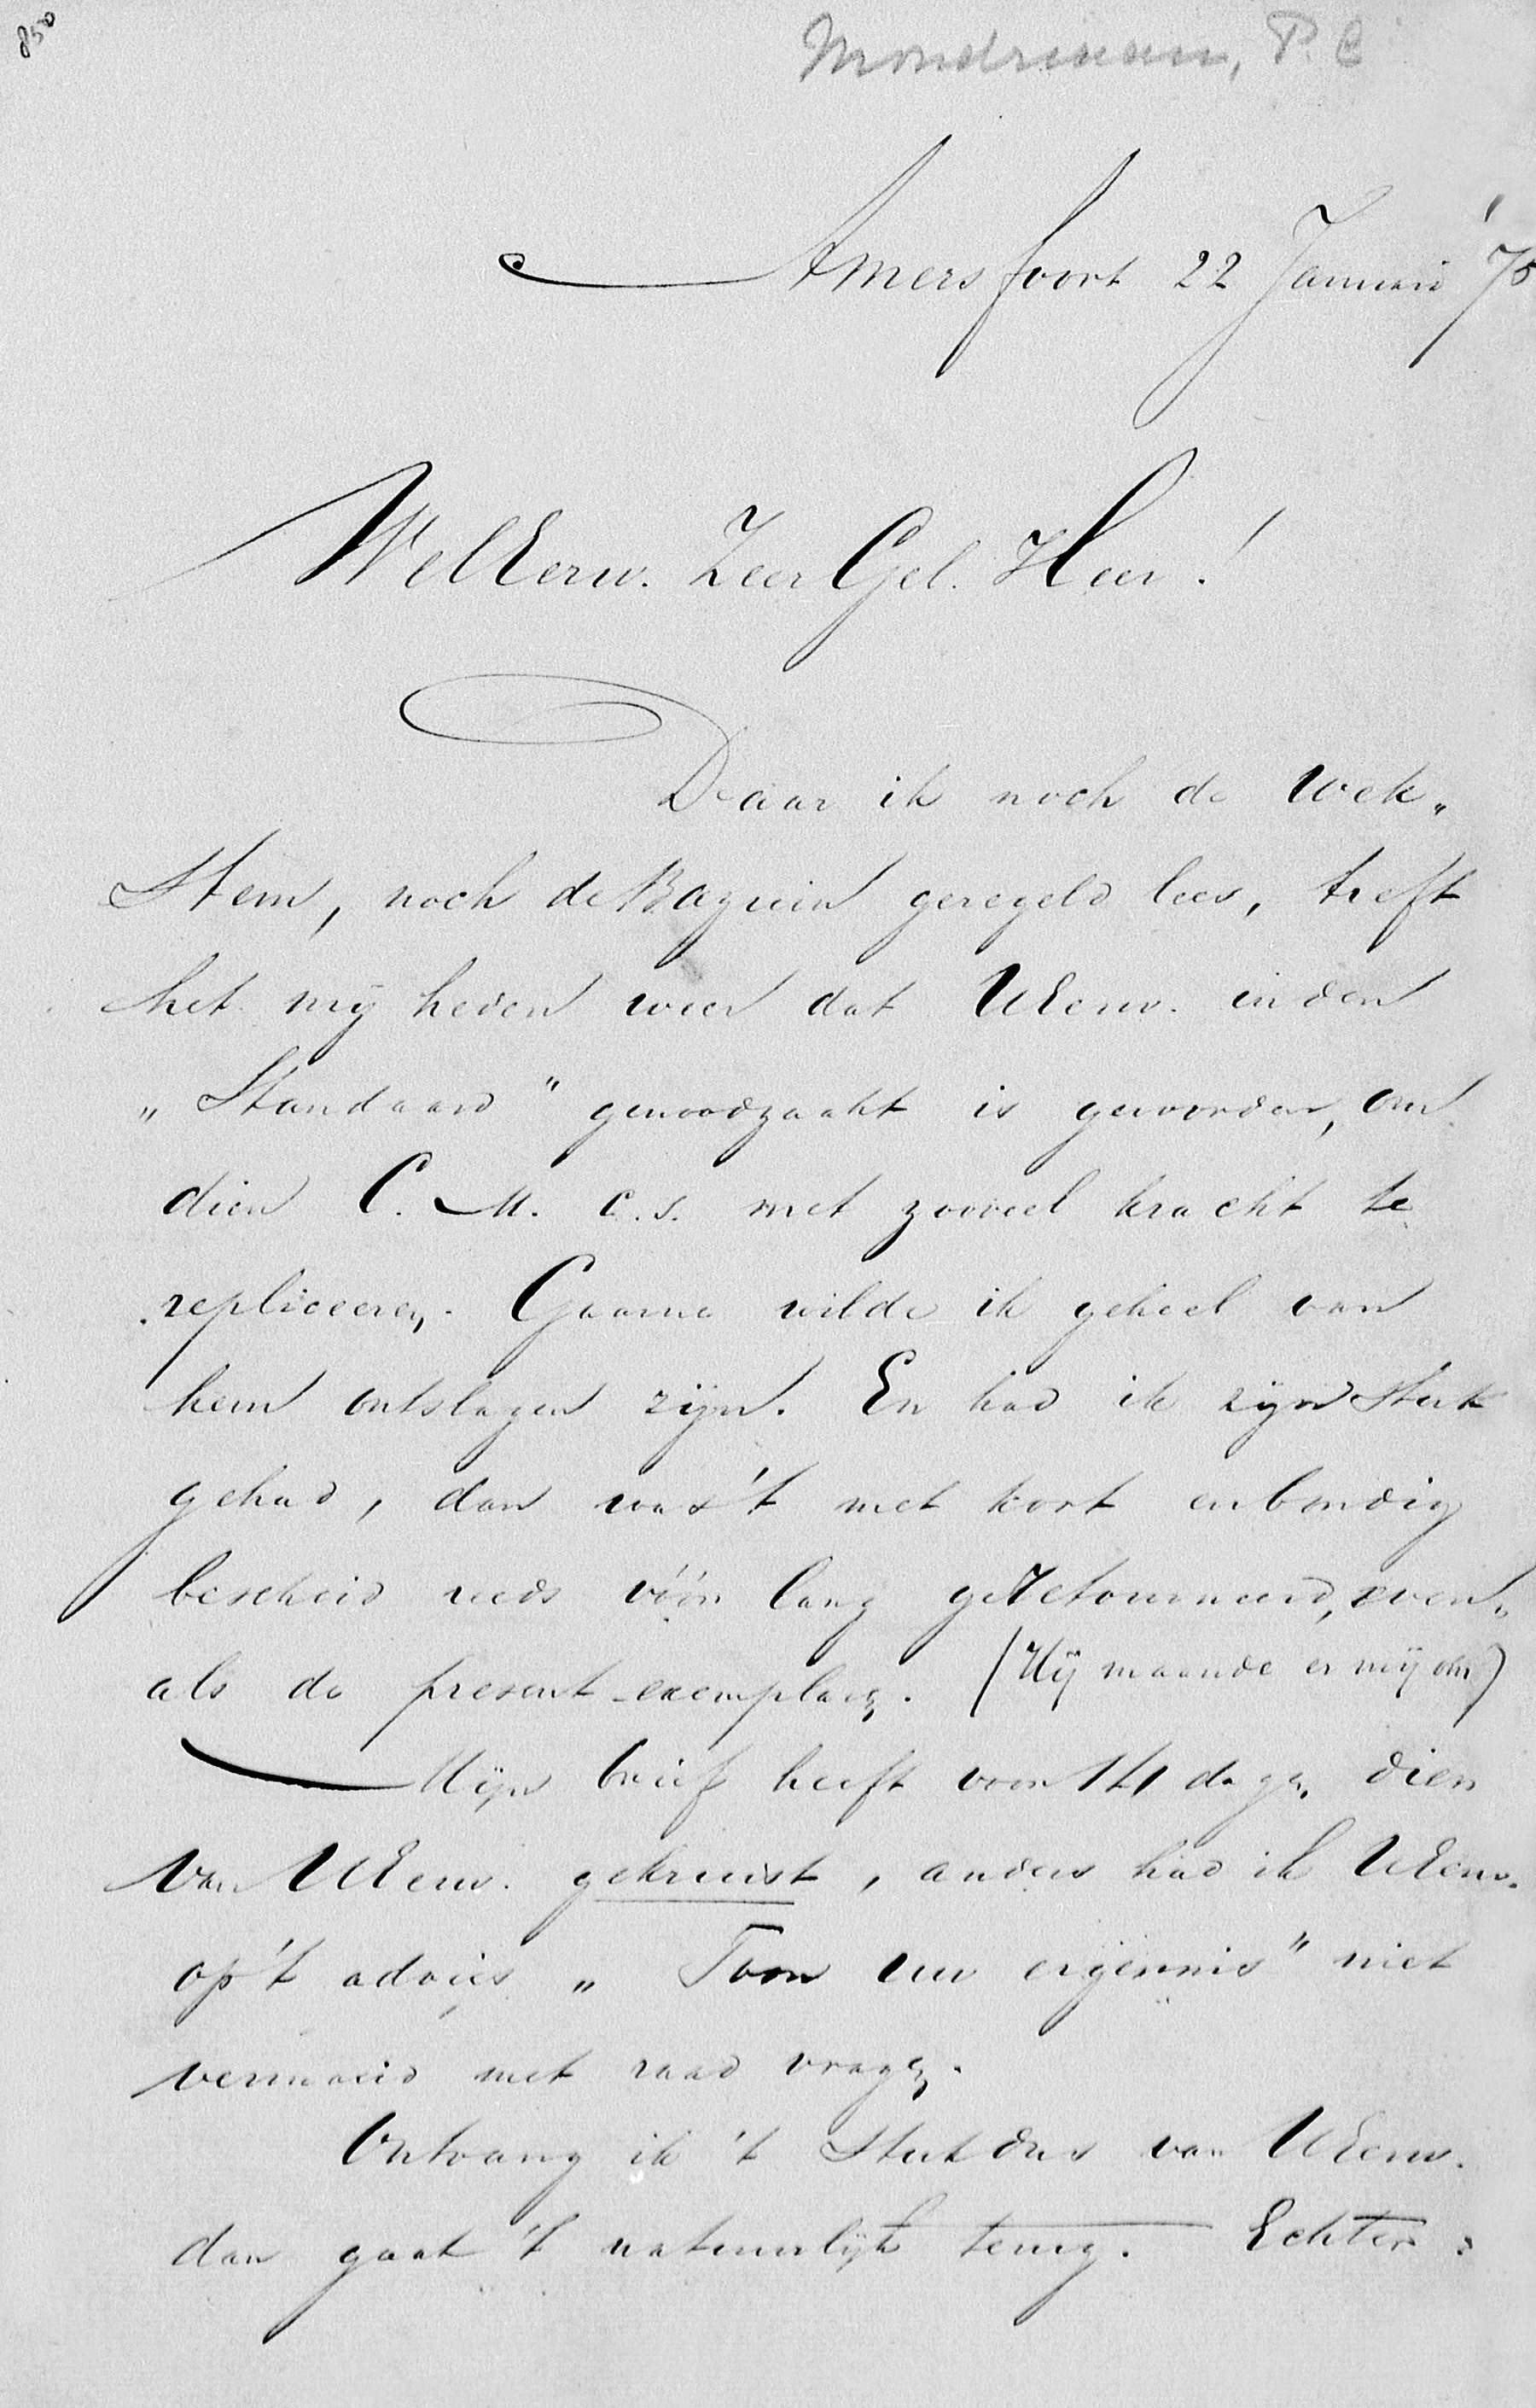 850
Mondriaan, P. C
Amersfoort 22 Januari '75
WelEerw. Zeer Gel. Heer!
Daar ik noch de Wek„
stem, noch de Bazuin geregeld lees, treft
het mij heden weer dat UEerw. in den
„Standaard" genoodzaakt is geworden, om
dien C. M. c.s. met zooveel kracht te
repliceeren. Gaarne wilde ik geheel van
hem ontslagen zijn. En had ik zijn stuk
gehad, dan was 't met kort en bondig
bescheid reeds vóór lang geretourneerd, even„
als de present-exemplaren. (Hij maande er mij om)
Mijn brief heeft voor 14 dagen dien
van UEerw. gekruist, anders had ik UEerw.
op 't advies „Toon uw ergernis" niet
vermoeid met raad vragen.
Ontvang ik 't stuk dus van UEerw.
dan gaat 't natuurlijk terug. Echter: